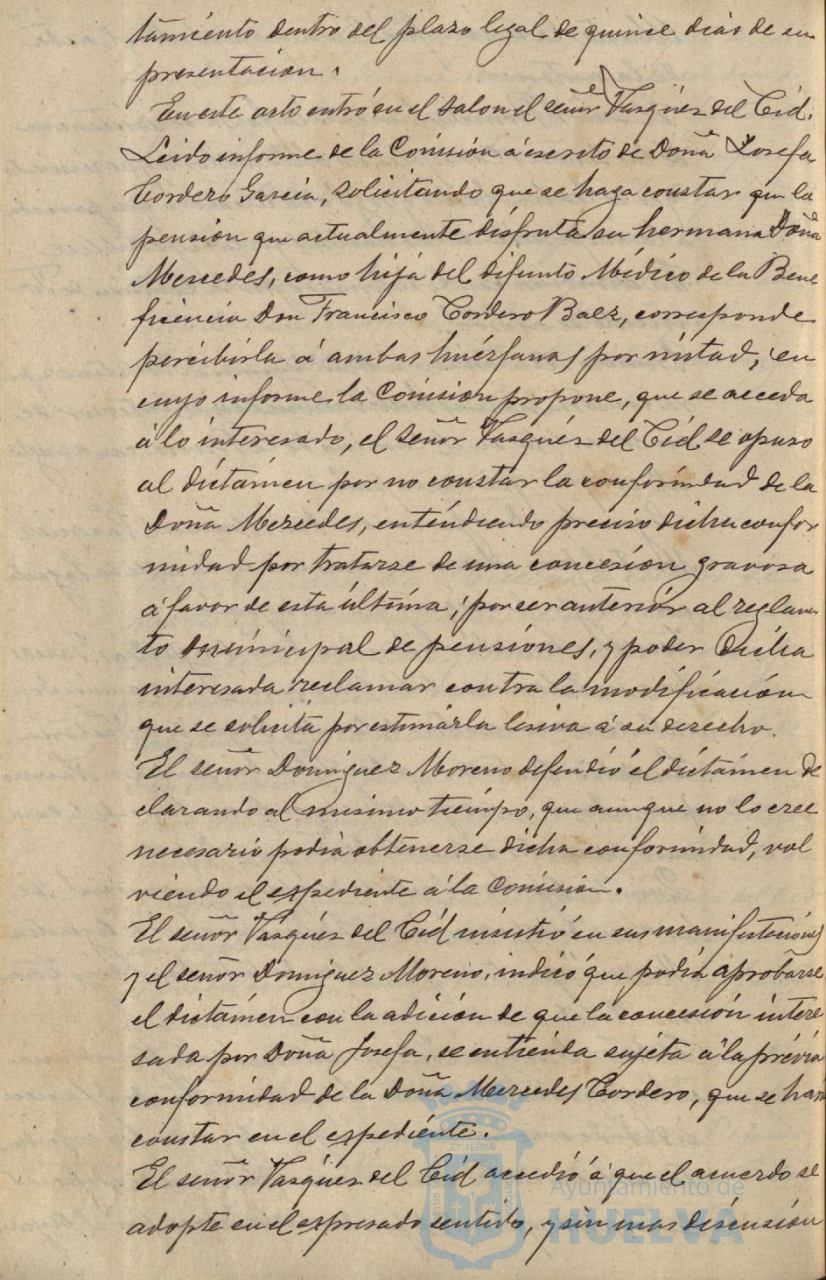 tamiento dentro del plazo legal de quince dias de su
presentacion.
En este acto entró en el salon el señor Vasquéz del Cid.
Leido informe de la Comisión á escrito de Doña Josefa
Cordero Garcia, solicitando que se haga constar que la
pension que actualmente disfruta su hermana Doña
Mercedes, como hija del difunto Médico de la Bene
ficencia Don Francisco Cordero Baez, corresponde
percibirla á ambas huérfanas por mitad, en
cuyo informe la Comision propone, que se acceda
á lo interesado, el señor Vasquéz del Cid se opuso
al dictámen por no constar la conformidad de la
Doña Mercedes, entendiendo preciso dicha confor
midad por tratarse de una concesión gravosa
á favor de esta última, por ser anterior al reglamen
to municipal de pensiones, y poder dicha
interesada reclamar contra la modificación
que se solicita por estimarla lesiva á su derecho.
El señor Dominguez Moreno defendió el dictámen de
clarando al mismo tiempo, que aunque no lo cree
necesario podia obtenerse dicha conformidad, vol
viendo el espediente á la Comision.
El señor Vasquéz del Cid insistió en sus manifestaciónes
y el señor Dominguez Moreno, indicó que podia aprobarse
el dictámen con la adición de que la concesión intere
sada por Doña Josefa, se entienda sujeta á la prévia
conformidad de la Doña Mercedes Cordero, que se hara
constar en el espediénte.
El señor Vasquéz del Cid accedió á que el acuerdo se
adopte en el espresado sentido, y sin mas discusión
Ayuntamiento de
HUELVA